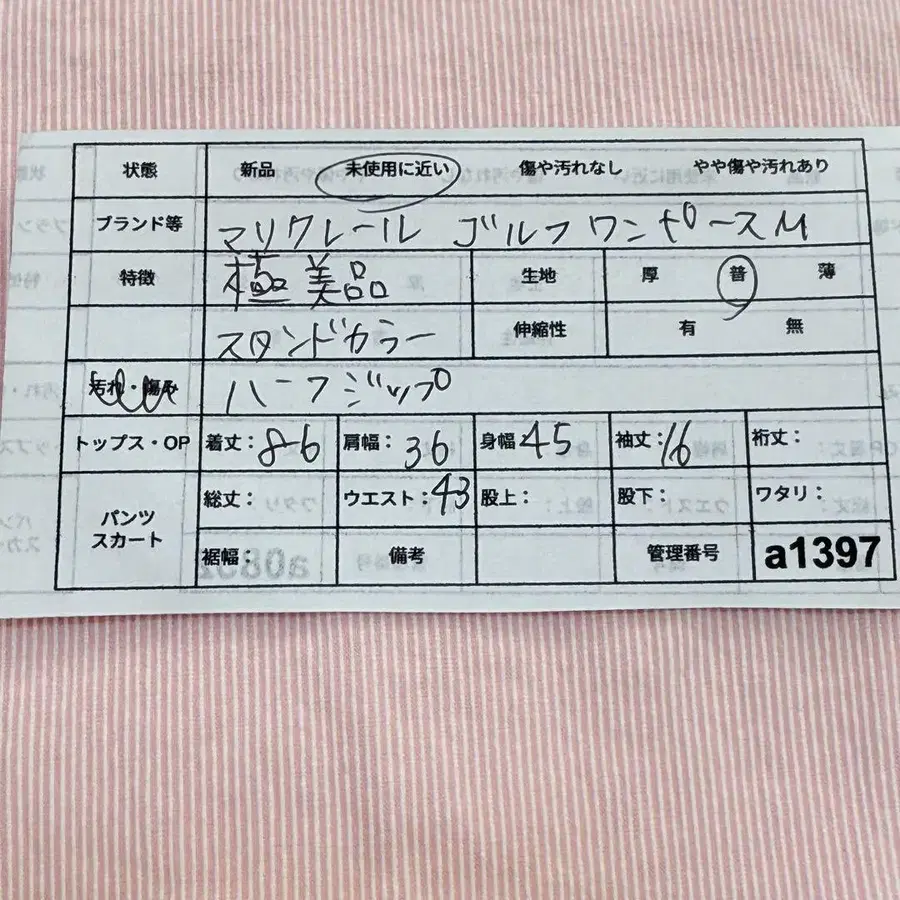 状態 新品 未使用に近い 傷や汚れなし やや傷や汚れあり
ブランド等 マリクレール ゴルフワンピースM
特徴 極美品 生地 厚 普 薄
スタンドカラー 伸縮性 有 無
汚れ・傷み ハーフジップ
トップス・OP 着丈:86 肩幅:36 身幅45 袖丈:16 裄丈:
パンツ スカート 総丈: ウエスト:43 股上: 股下: ワタリ:
裾幅: 備考 管理番号 a1397